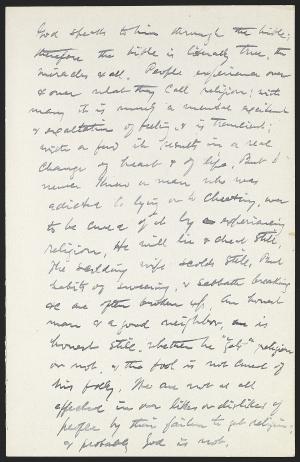 God speaks to him through the bible;
therefore the bible is literally true, the
miracles & all. People experience over
& over what they call religion; with
many it is merely a mental excitement
& exaltation of feeling, & is transient;
with a few it results in a real
change of heart & of life. But I
never knew a man who was
addicted to lying or to cheating, ever
to be cured of it by experiencing
religion. He will lie & cheat still.
The scolding wife scolds still. But
habits of swearing, & sabbath breaking
&c are often broken up. An honest
man & a good neighbor, is
honest still, whether he "gets" religion
or not, & the fool is not cured of
his folly. We are not at all
affected in our likes or dislikes of
people by their failure to get religion,
& probably God is not.